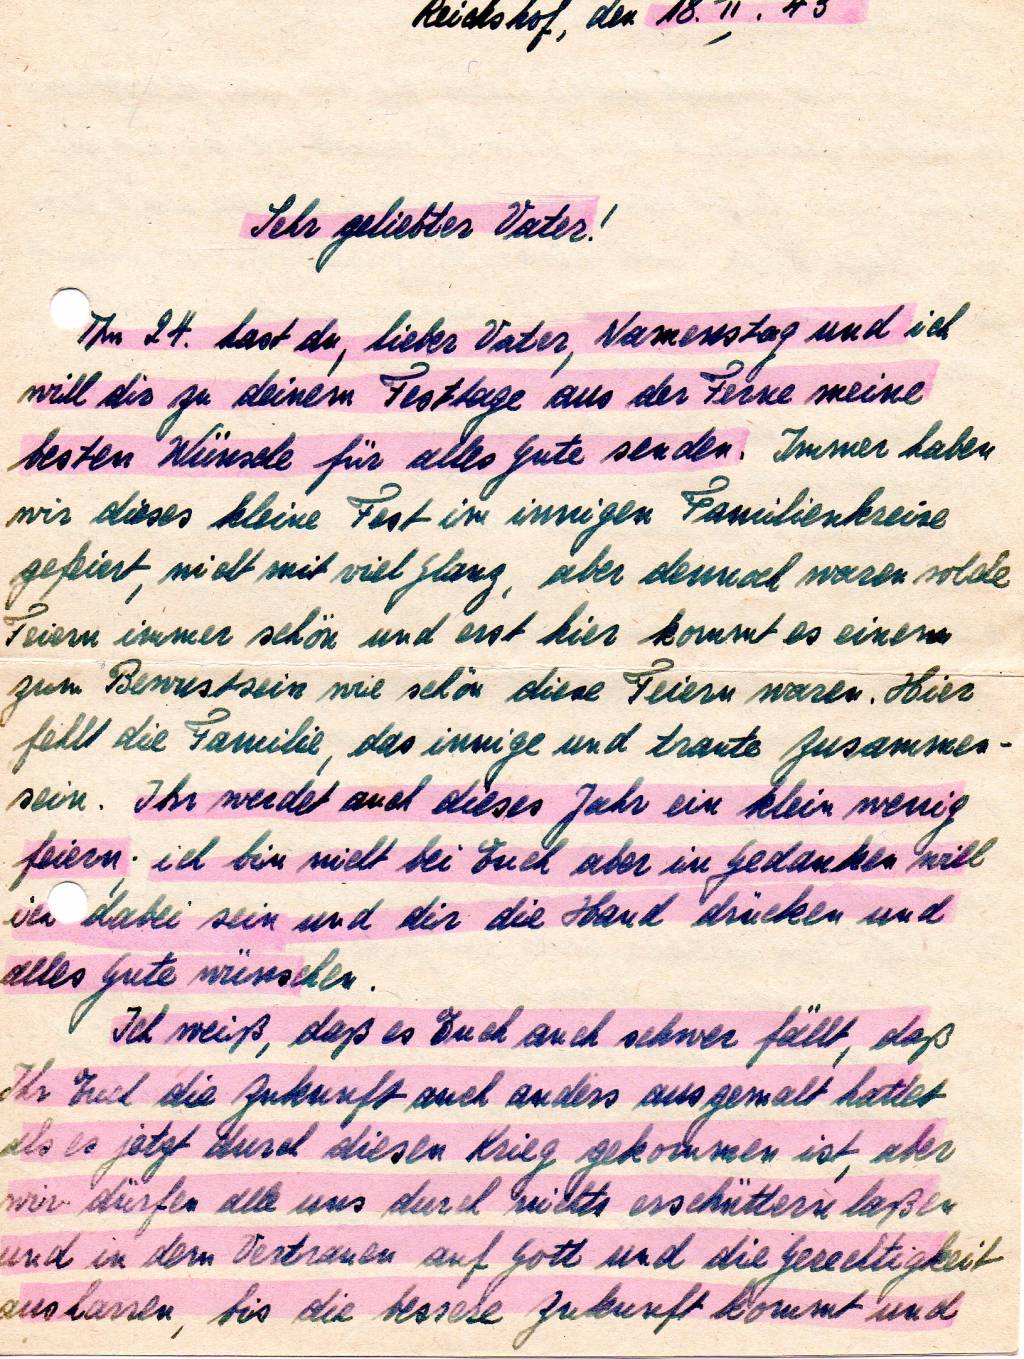 Reichshof, den 18. II. 43
Sehr geliebter Vater!
Am 24. hast du, lieber Vater, Namenstag und ich
will dir zu deinem Festtage aus der Ferne meine
besten Wünsche für alles Gute senden. Immer haben
wir dieses kleine Fest im innigen Familienkreise
gefeiert, nicht mit viel Glanz, aber dennoch waren solche
Feiern immer schön und erst hier kommt es einem
zum Bewustsein wie schön diese Feiern waren. Hier
fehlt die Familie, das innige und traute Zusammen-
sein. Ihr werdet auch dieses Jahr ein klein wenig
feiern, ich bin nicht bei Euch aber in Gedanken will
ich dabei sein und dir die Hand drücken und
alles Gute wünschen.
Ich weiß, daß es Euch auch schwer fällt, daß
Ihr Euch die Zukunft auch anders ausgemalt hattet
als es jetzt durch diesen Krieg gekommen ist, aber
wir dürfen alle uns durch nichts erschüttern laßen
und in dem Vertrauen auf Gott und die Gerechtigkeit
ausharren, bis die bessere Zukunft kommt und